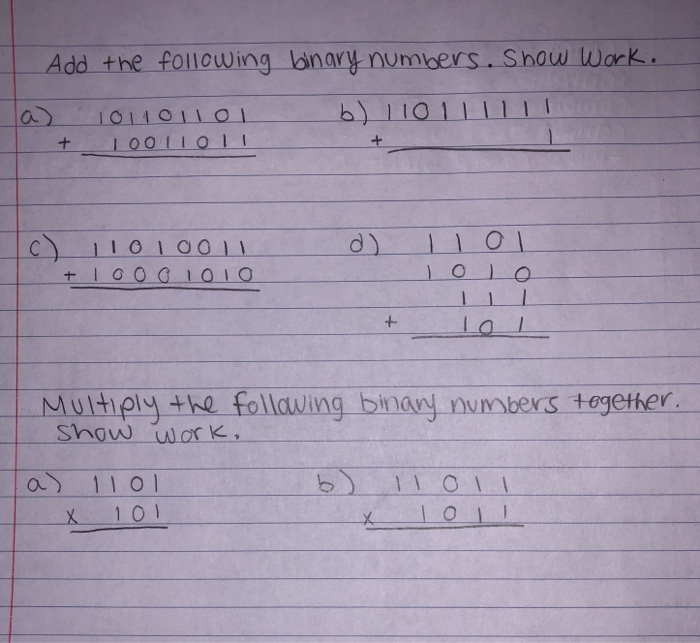 Add the following binary numbers. Show Work.
a) 101101101 b) 110111111
+ 10011011 + 1
c) 11010011 d) 1101
+ 10001010 1010
111
+ 101
Multiply the following binary numbers together.
Show work.
a) 1101 b) 11011
x 101 x 1011